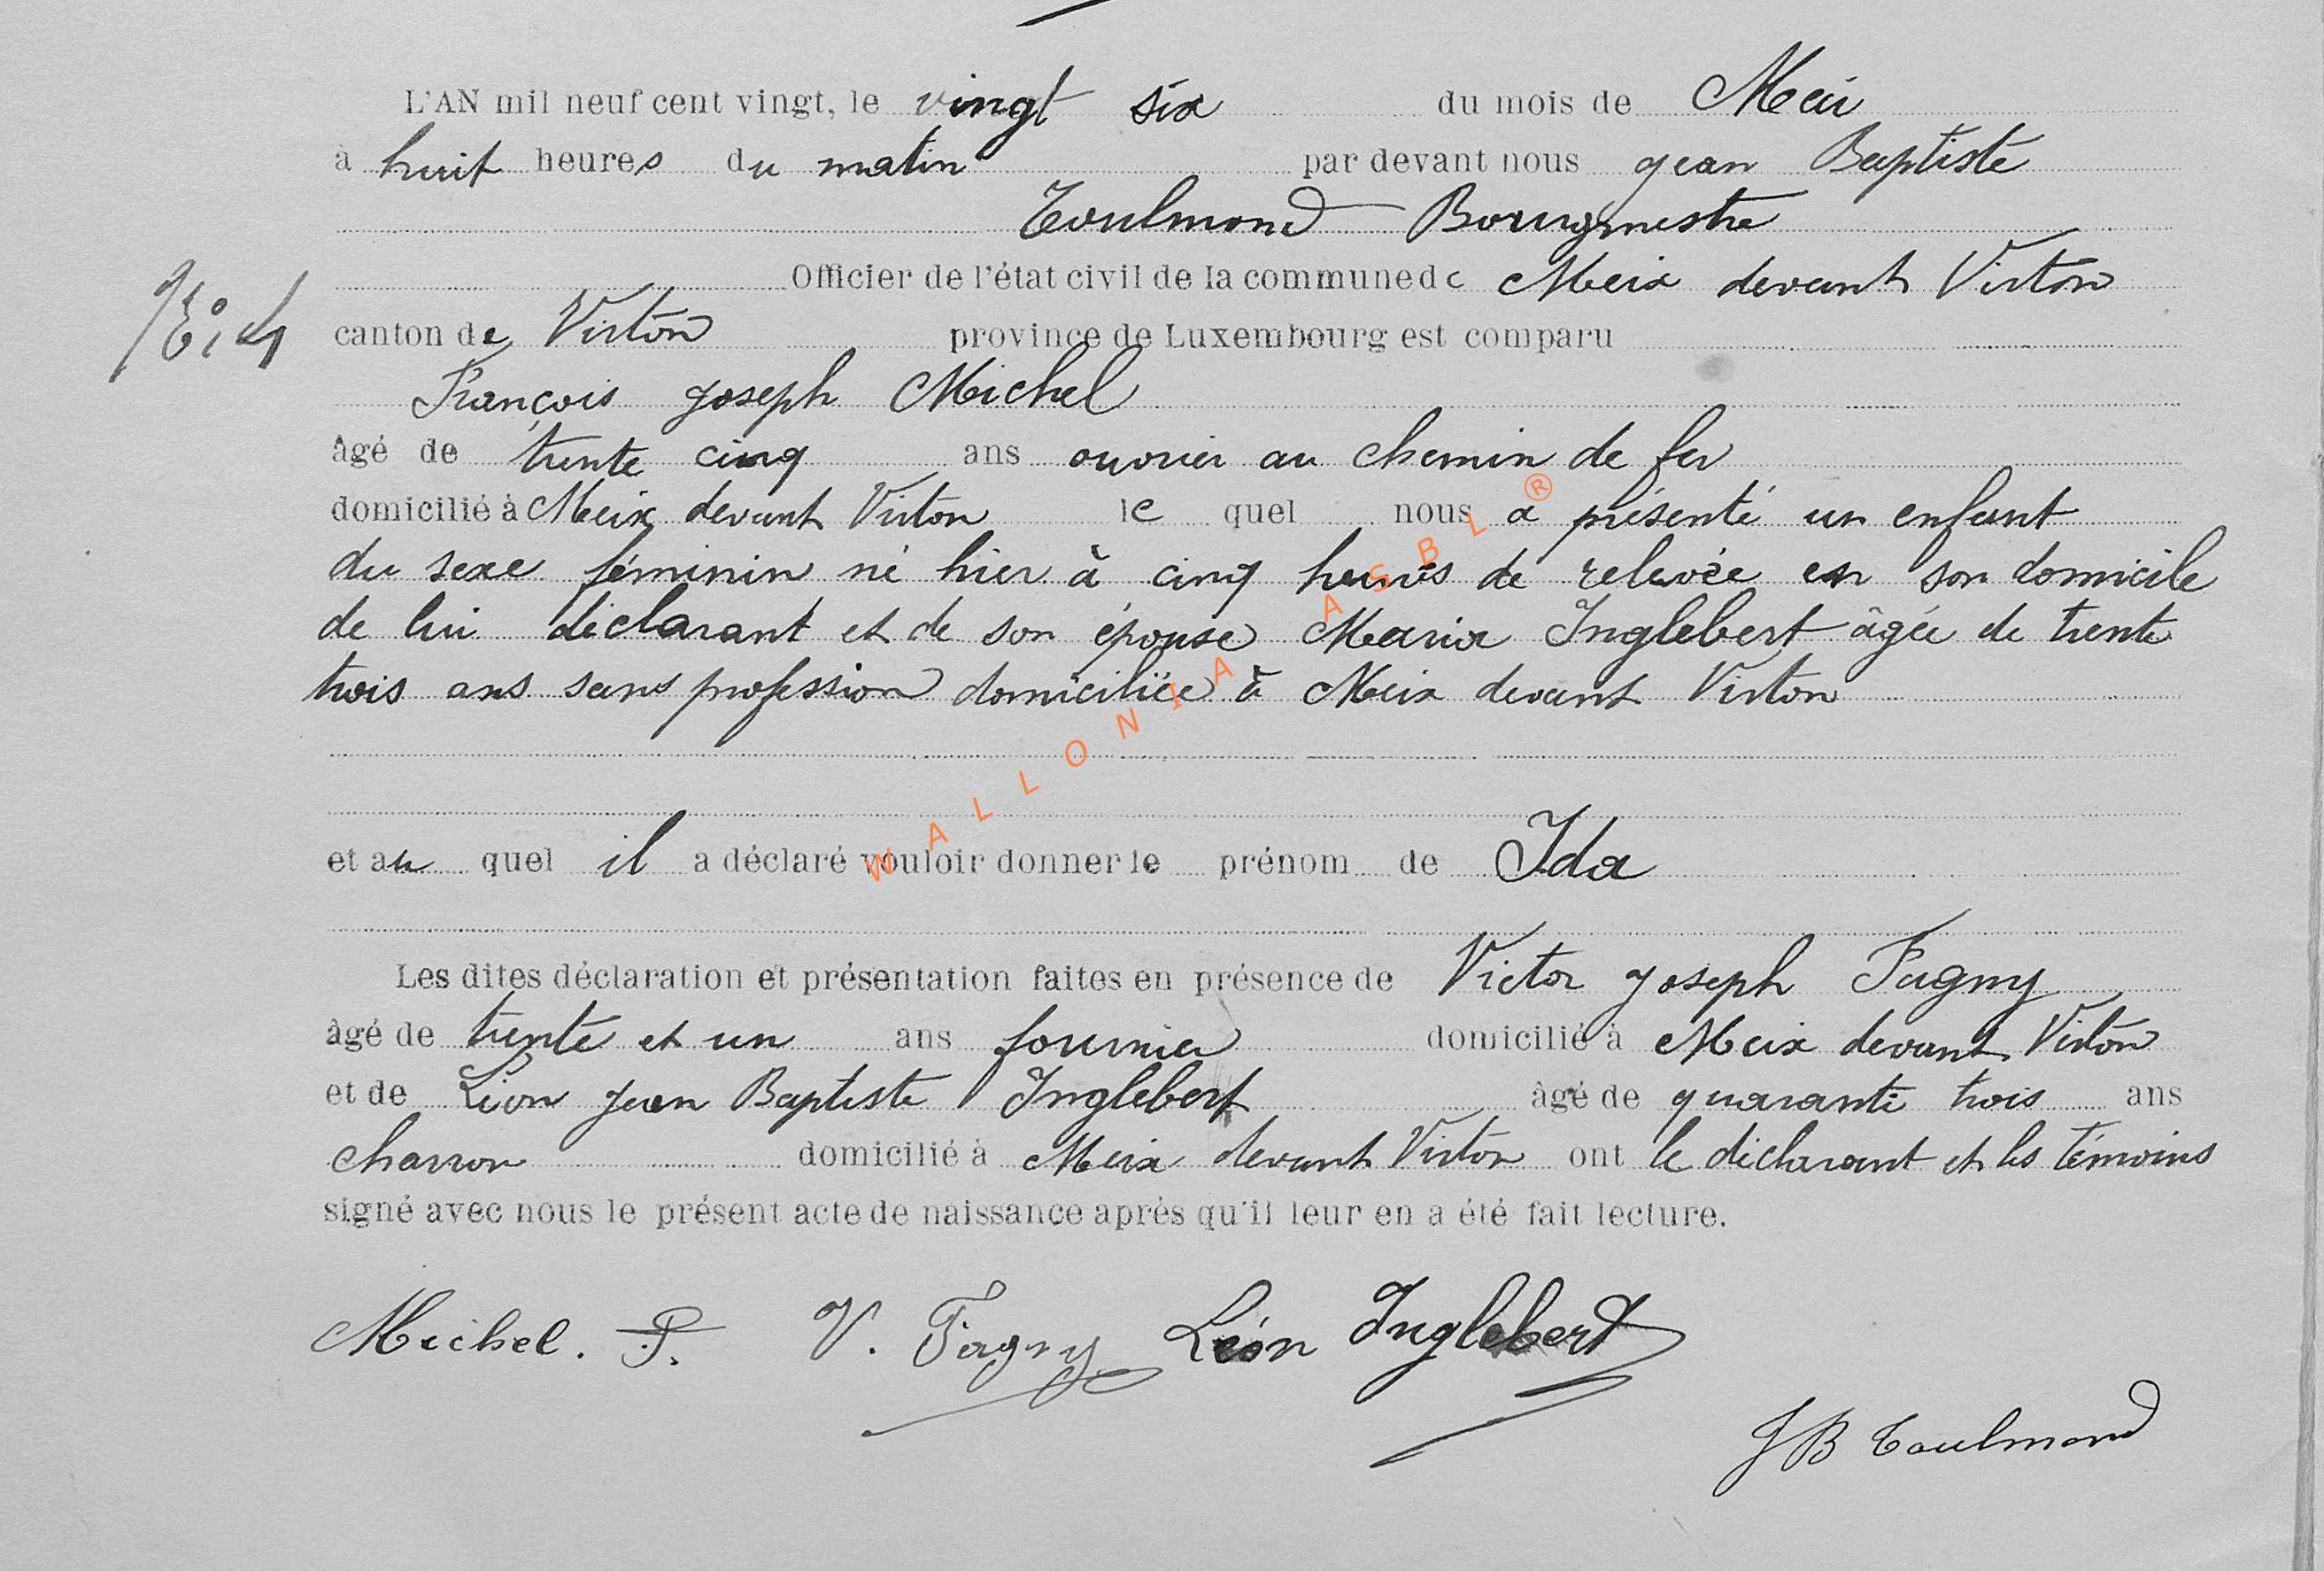 L'AN mil neuf cent vingt, le vingt six du mois de Mai
à huit heures du matin par devant nous Jean Baptiste
Toulmond Bourgmestre
Officier de l'état civil de la commune de Meix devant Virton
canton de Virton province de Luxembourg est comparu
François Joseph Michel
âgé de trente cinq ans ouvrier au chemin de fer
domicilié à Meix devant Virton le quel nous a présenté un enfant
du sexe féminin né hier à cinq heures de relevée en son domicile
de lui déclarant et de son épouse Maria Inglebert âgée de trente
trois ans sans profession domiciliée à Meix devant Virton
et au quel il a déclaré vouloir donner le prénom de Ida
Les dites déclaration et présentation faites en présence de Victor Joseph Fagny
âgé de trente et un ans fournier domicilié à Meix devant Virton
et de Léon Jean Baptiste Inglebert âgé de quarante trois ans
charron domicilié à Meix devant Virton ont le déclarant et les témoins
signé avec nous le présent acte de naissance après qu'il leur en a été fait lecture.
Michel. F. V. Fagny Léon Inglebert
JB Toulmond
WALLONIA ASBL ®